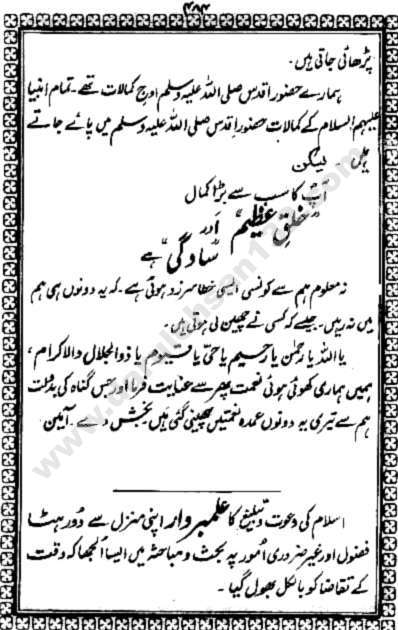 ۴۸۴
پڑھائی جاتی ہیں۔
ہمارے حضور اقدس صلی اللہ علیہ وسلم اوجِ کمالات تھے۔ تمام انبیا
علیہم السلام کے کمالات حضور اقدس صلی اللہ علیہ وسلم میں پائے جاتے
ہیں ۔ لیکن
آپؐ کا سب سے بڑا کمال
”خلقِ عظیم“ اور
”سادگی“ ہے
نہ معلوم ہم سے کونسی ایسی خطا سرزد ہوئی ہے۔ کہ یہ دونوں ہی ہم
میں نہ رہیں۔ جیسے کہ کسی نے چھین لی ہوتی ہیں۔
یا اللہ یا رحمٰن یا رحیم یا حیّ یا قیوم یا ذوالجلال والاکرام ،
ہمیں ہماری کھوئی ہوئی نعمت پھر سے عنایت فرما اور جس گناہ کی بدولت
ہم سے تیری یہ دونوں عمدہ نعمتیں چھینی گئی ہیں۔ بخش دے ۔ آمین
اسلام کی دعوت و تبلیغ کا علمبردار اپنی منزل سے دور ہٹا
فضول اور غیر ضروری امور پہ بحث و مباحثہ میں ایسا الجھا کہ وقت
کے تقاضا کو بالکل بھول گیا ۔